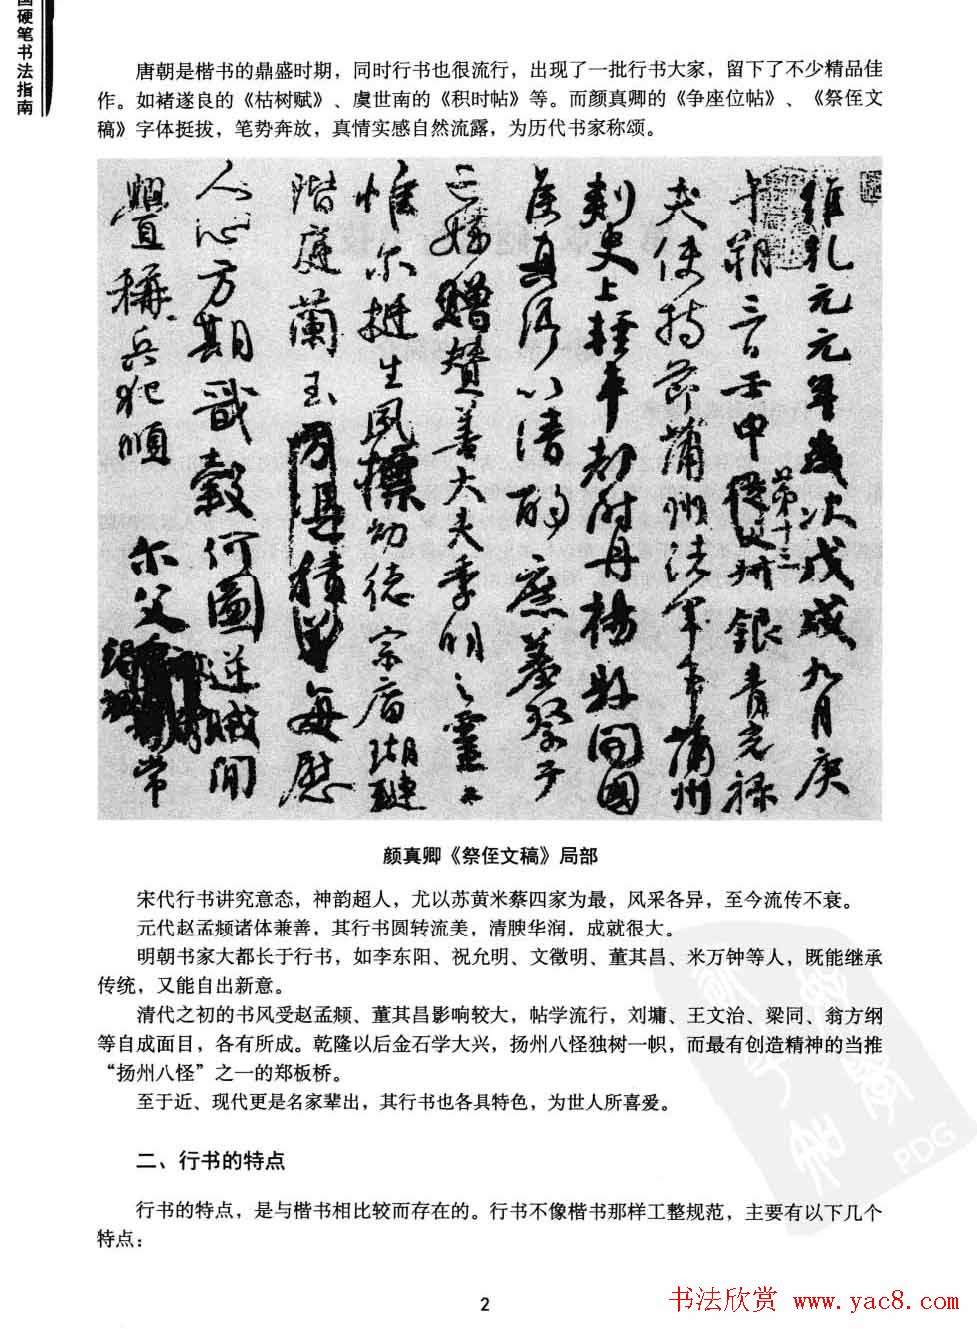 国硬笔书法指南
唐朝是楷书的鼎盛时期，同时行书也很流行，出现了一批行书大家，留下了不少精品佳
作。如褚遂良的《枯树赋》、虞世南的《积时帖》等。而颜真卿的《争座位帖》、《祭侄文
稿》字体挺拔，笔势奔放，真情实感自然流露，为历代书家称颂。
維乾元元年歲次戊戌九月庚
午朔三日壬申第十三從父銀青光禄
夫使持節蒲州諸軍事蒲州
刺史上輕車都尉丹楊縣開國
侯真卿以清酌庶羞祭于
亡姪贈贊善大夫季明之靈
惟尔挺生夙標幼德宗廟瑚璉
階庭蘭玉每慰
人心方期戩穀何圖逆賊閒
釁稱兵犯順
尔父
常
颜真卿《祭侄文稿》局部
宋代行书讲究意态，神韵超人，尤以苏黄米蔡四家为最，风采各异，至今流传不衰。
元代赵孟頫诸体兼善，其行书圆转流美，清腴华润，成就很大。
明朝书家大都长于行书，如李东阳、祝允明、文徵明、董其昌、米万钟等人，既能继承
传统，又能自出新意。
清代之初的书风受赵孟頫、董其昌影响较大，帖学流行，刘墉、王文治、梁同、翁方纲
等自成面目，各有所成。乾隆以后金石学大兴，扬州八怪独树一帜，而最有创造精神的当推
“扬州八怪”之一的郑板桥。
至于近、现代更是名家辈出，其行书也各具特色，为世人所喜爱。
二、行书的特点
行书的特点，是与楷书相比较而存在的。行书不像楷书那样工整规范，主要有以下几个
特点：
PDG
2
书法欣赏 www.yac8.com